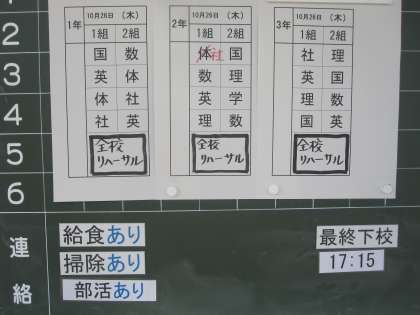 1年 10月26日 (木)
1組 2組
国 数
英 体
体 社
社 英
全校
リハーサル
2年 10月26日 (木)
1組 2組
体 社 国
数 理
英 学
理 数
全校
リハーサル
3年 10月26日 (木)
1組 2組
社 理
英 国
理 数
国 英
全校
リハーサル
2
3
4
5
6
連絡
給食あり
掃除あり
部活あり
最終下校
17:15